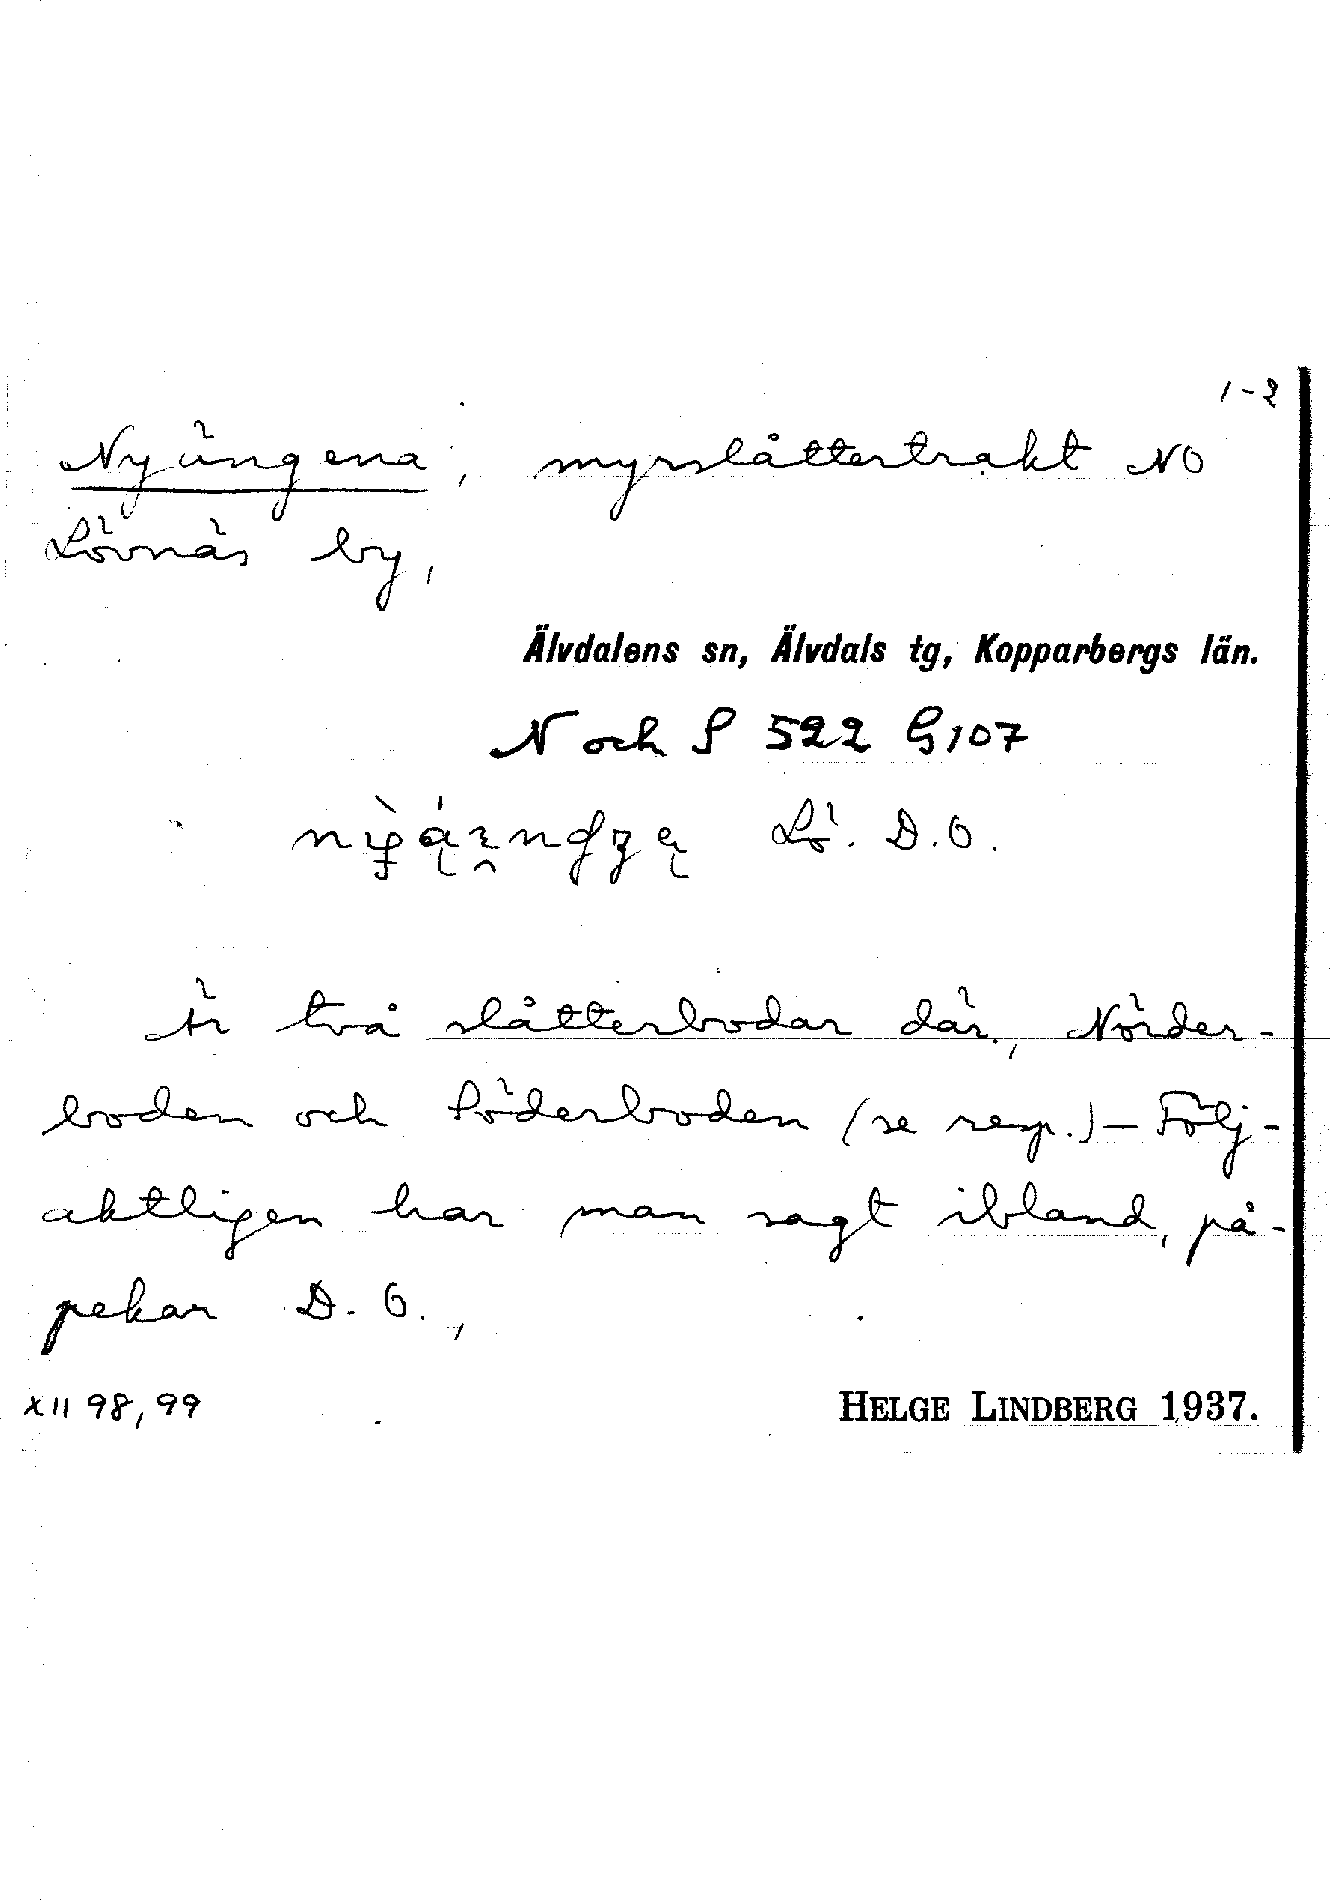 1-2
Nyängena, myrslåttertrakt NO
Lövnäs by,
Älvdalens sn, Älvdals tg, Kopparbergs län.
N och S 522 G107
Lö. D.O.
Är två slåtterbodar där, Nörder-
boden och Söderboden (se resp.) – Följ-
aktligen har man sagt ibland, på-
pekar D. O.,
XII 98, 99
HELGE LINDBERG 1937.